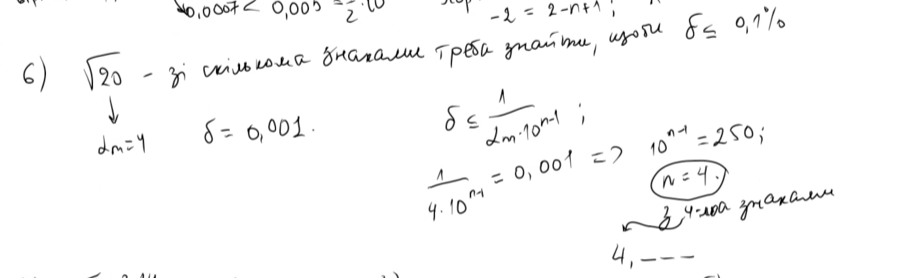 0,0007 < 0,005 = 1/2 · 10
-2 = 2-n+1;
б) √20 – зі скількома знаками треба знайти, щоби δ ≤ 0,1%
↓
αm=4
δ = 0,001.
δ ≤ 1/(αm·10^(n-1));
1/(4·10^(n-1)) = 0,001 => 10^(n-1) = 250;
n = 4.
з 4-ма знаками
4, – – –